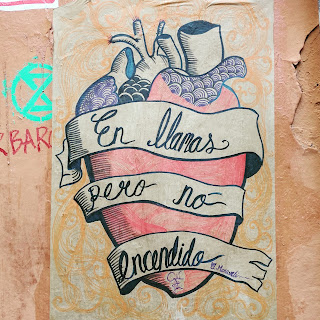 BAR
En llamas
pero no
encendido